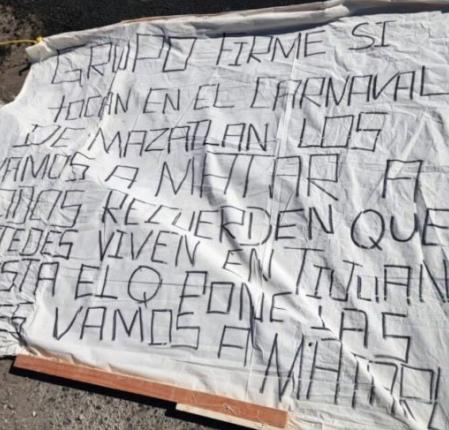 GRUPO FIRME SI
TOCAN EN EL CARNAVAL
DE MAZATLAN LOS
VAMOS A MATAR A
RECUERDEN QUE
TEDES VIVEN EN TIJUAN
STA EL Q PONE LAS
VAMOS A MATAR